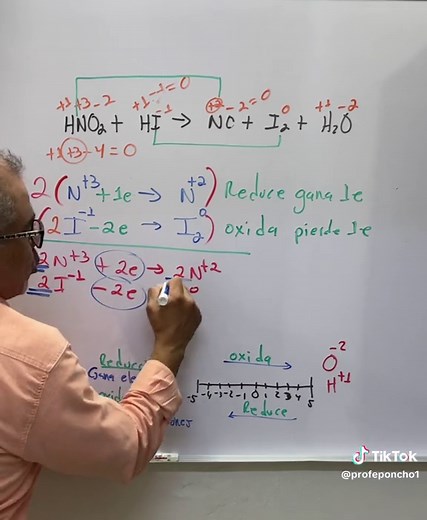 -1=0
+1+3-2 +1 -1 +2-2=0 0 +1 -2
HNO₂ + HI → NO + I₂ + H₂O
+1+3-4=0
2(N⁺³+1e → N⁺²) Reduce gana 1e
(2I⁻¹-2e → I₂⁰) oxida pierde 1e
2N⁺³ +2e → 2N⁺²
2I⁻¹ -2e
Reduce
Gana
oxida
-5 -4 -3 -2 -1 0 1 2 3 4 5
Reduce
O⁻²
H⁺¹
TikTok
@profeponcho1